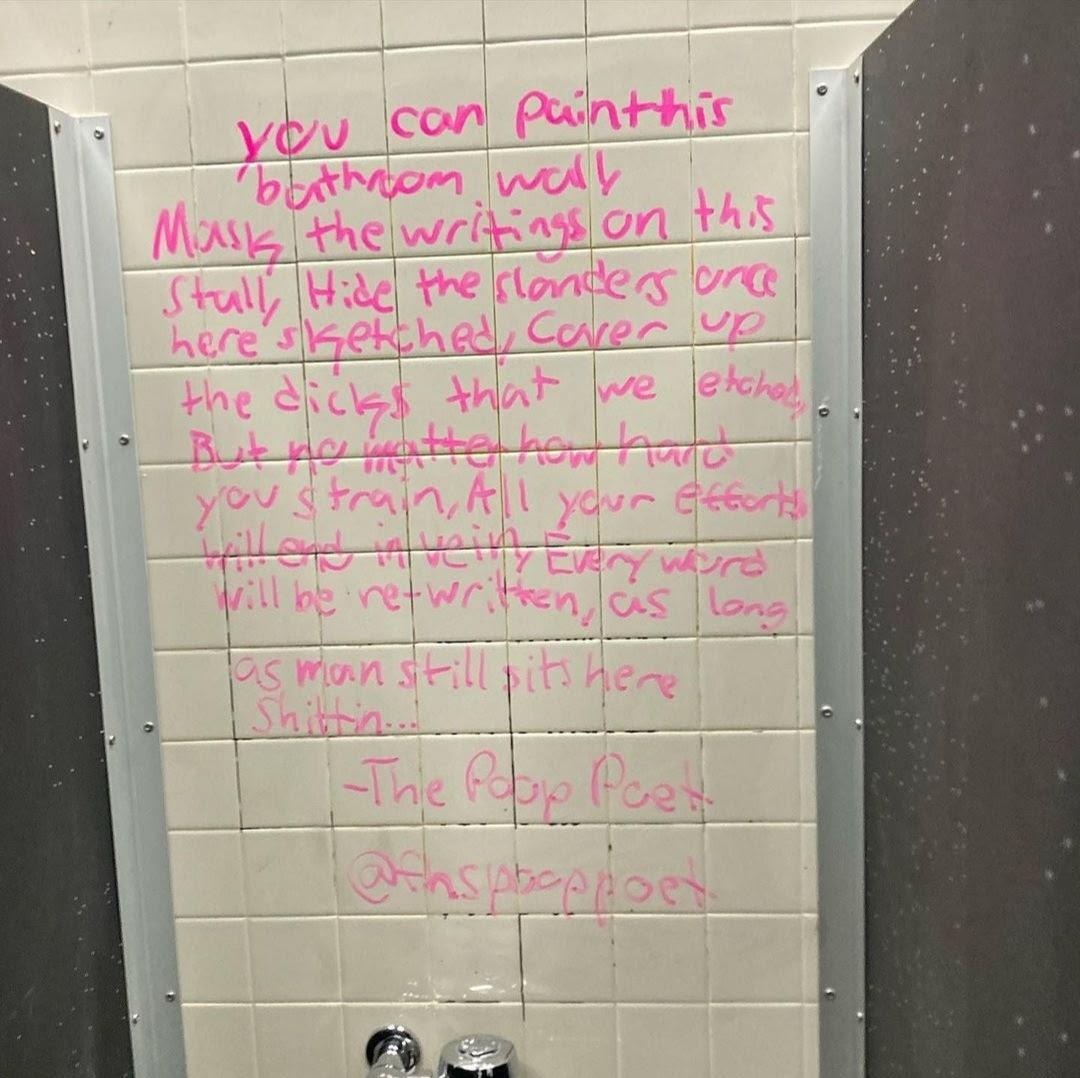 you can paint this
bathroom wall
Mask the writings on this
stall, Hide the slanders once
here sketched, Cover up
the dicks that we etched,
But no matter how hard
you strain, All your efforts
will end in vein, Every word
will be re-written, as long
as man still sits here
Shittin...
-The Poop Poet
@fhspooppoet